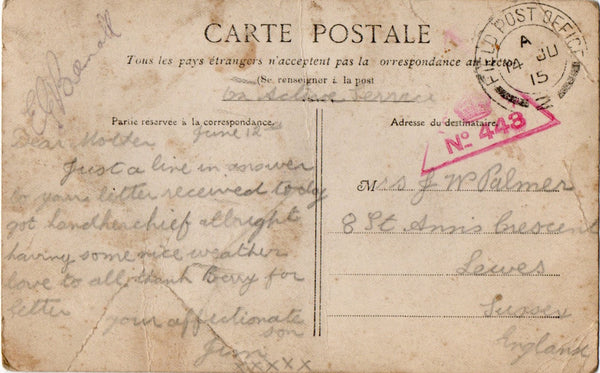 CARTE POSTALE
Tous les pays étrangers n'acceptent pas la correspondance au recto
(Se renseigner à la post
on Active Service
Partie reservée à la correspondance.
Adresse du destinataire.
FIELD POST OFFICE
A
14 JU
15
No 443
June 12th
Dear Mother
Just a line in answer
to your letter received today
got handkerchief allright
having some nice weather
love to all thank Berry for
letter
your affectionate
son
Jim
xxxxx
Mrs J W Palmer
8 St Ann's Crescent
Lewes
Sussex
England